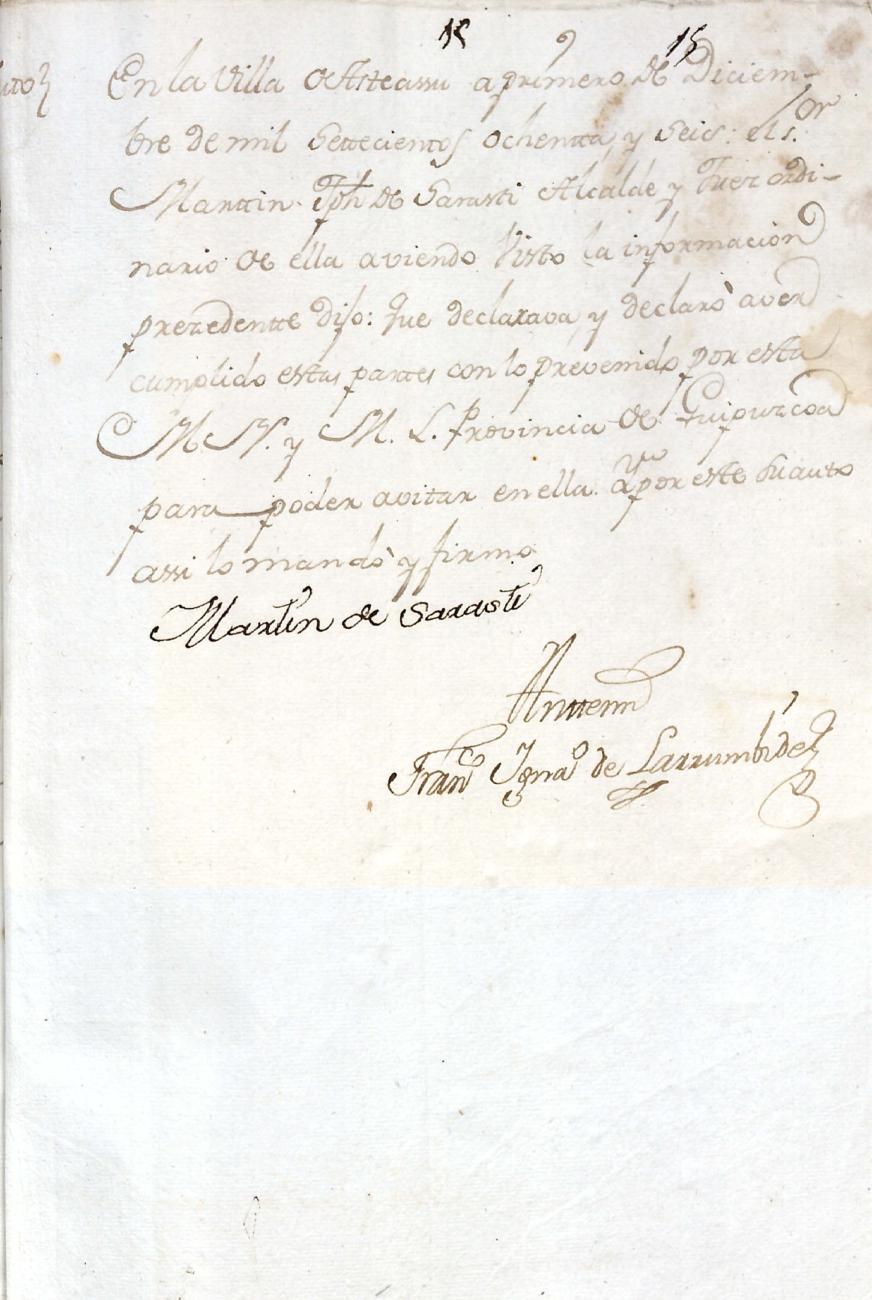 15 9 15
En la Villa de Asteassu a primero de Diciem-
bre de mil settecientos ochentta, y seis: el s.or
Marttin Jph de Sarasti Alcalde y Juez ordi-
nario de ella aviendo visto la informacion
prezedentte dijo: que declarava, y declarò aver
cumplido estas parttes con lo prevenido por esta
M. N. y M. L. Provincia de Guipuzcoa
para poder avitar en ella. Y por este su auto
assi lo mandò y firmo
Martin de Sarasti
Anttemi
Fran.co Igna.o de Larrumbide